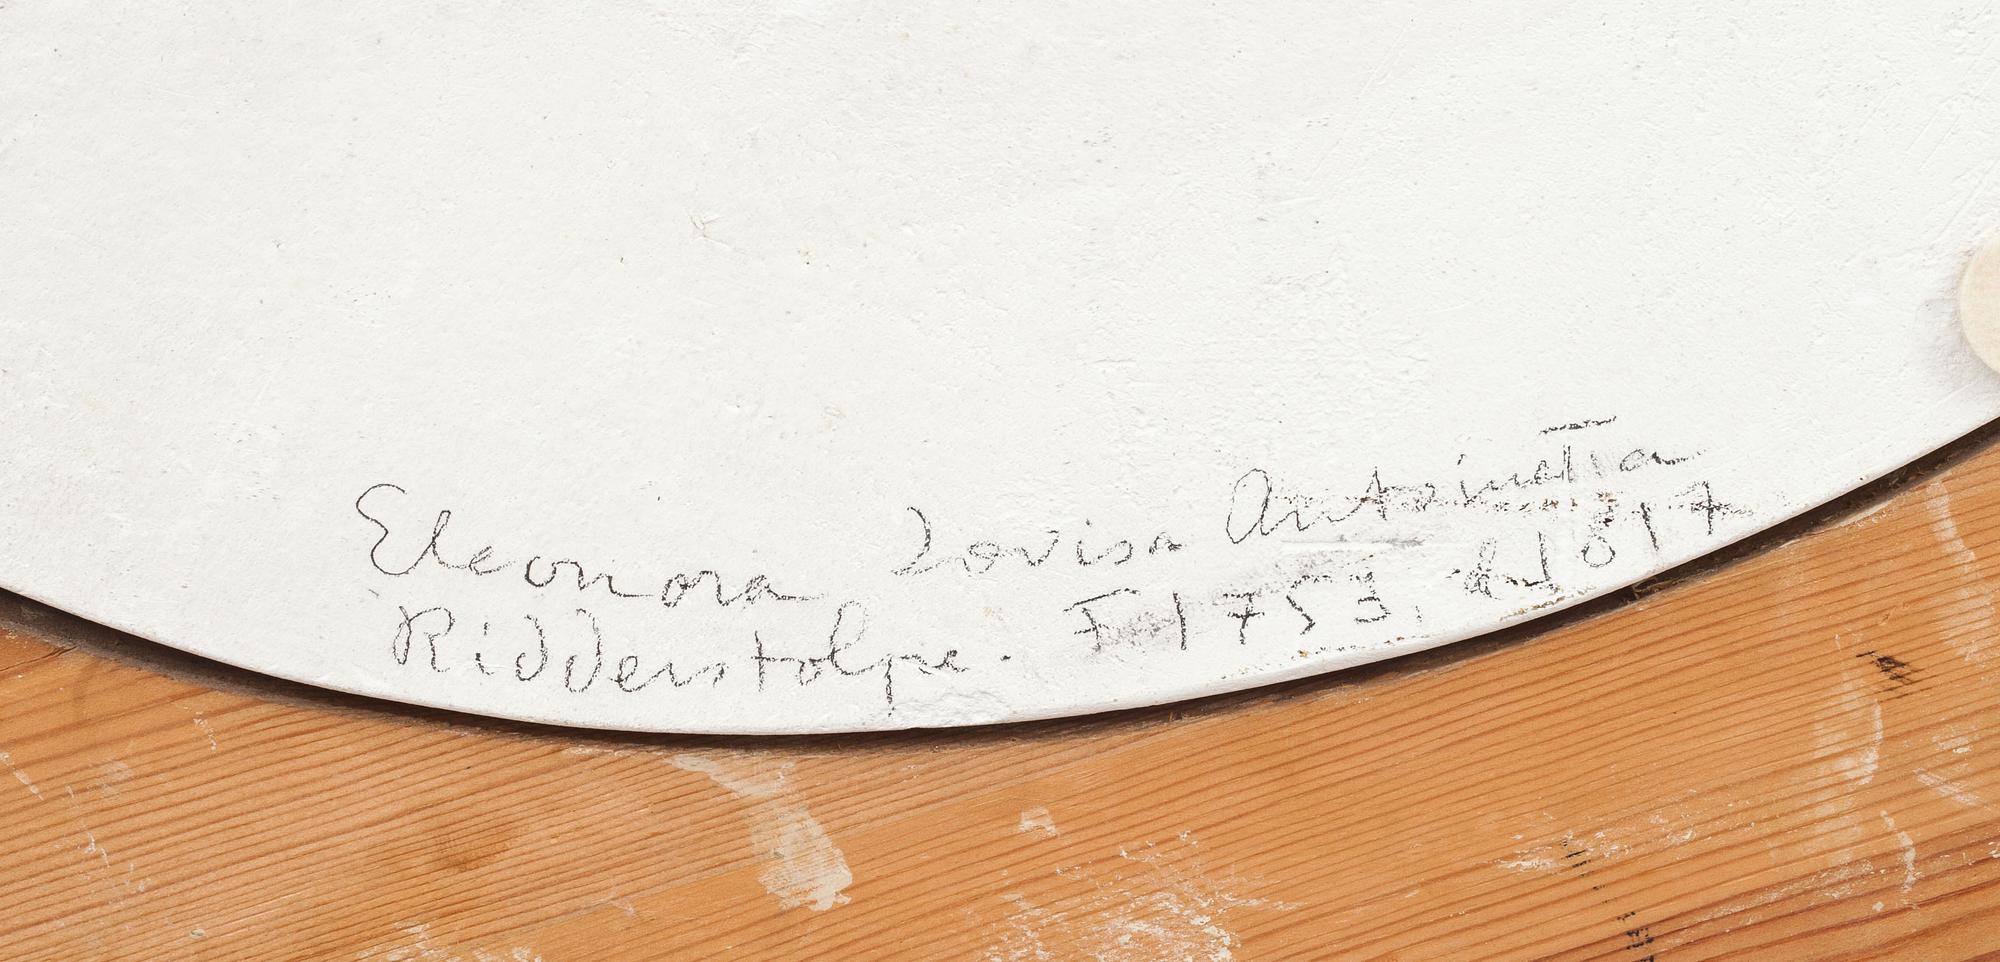 Eleonora Lovisa Antoinetta
Ridderstolpe. F 1753, d 1817